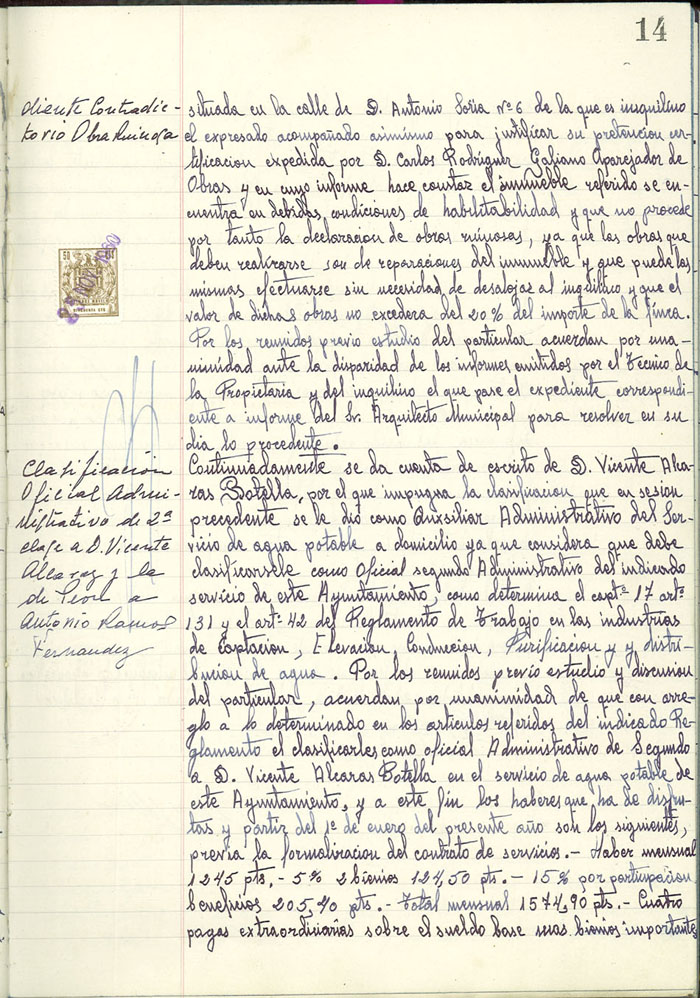 14
diente Contradic-
torio Obra Ruinosa
situada en la calle de D. Antonio Soria Nº 6 de la que es inquilino
el expresado acompañado asimismo para justificar su pretencion cer-
tificacion expedida por D. Carlos Rodríguez Galiano Aparejador de
Obras y en cuyo informe hace constar el inmueble referido se en-
cuentra en debidas condiciones de habilitabilidad y que no procede
por tanto la declaracion de obras ruinosas, ya que las obras que
deben realizarse son de reparaciones del inmueble y que puede las
mismas efectuarse sin necesidad de desalojar al inquilino y que el
valor de dichas obras no excedera del 20% del importe de la finca.
Por los reunidos previo estudio del particular acuerdan por una-
nimidad ante la disparidad de los informes emitidos por el Tecnico de
la Propietaria y del inquilino el que pase el expediente correspondi-
ente a informe del Sr. Arquitecto Municipal para resolver en su
dia lo procedente.
50
NOV. 1960
Clasificación
Oficial Admi-
nistrativo de 2ª
clase a D. Vicente
Alcaraz y la
de Peon a
Antonio Ramos
Fernandez
Continuadamente se da cuenta de escrito de D. Vicente Alca-
ras Botella, por el que impugna la clasificacion que en sesion
precedente se le dió como Auxsiliar Administrativo del Ser-
vicio de agua potable a domicilio ya que considera que debe
clasificarsele como Oficial segundo Administrativo del indicado
servicio de este Ayuntamiento, como determina el captº 17 artº
131 y el artº 42 del Reglamento de Trabajo en las industrias
de Captacion, Elevacion, Conduccion, Purificacion y y distri-
bucion de agua. Por los reunidos previo estudio y discusion
del particular, acuerdan por unanimidad de que con arre-
glo a lo determinado en los articulos referidos del indicado Re-
glamento el clasificarles como oficial Administrativo de Segundo
a D. Vicente Alcaras Botella en el servicio de agua potable de
este Ayuntamiento, y a este fin los haberes que ha de disfru-
tas y partir del 1º de enero del presente año son los siguientes,
previa la formalizacion del contrato de servicios.- Haber mensual
1245 pts.- 5% 2 bienios 124,50 pts.- 15% por participacion
beneficios 205,40 pts.- Total mensual 1574,90 pts.- Cuatro
pagas extraordinarias sobre el sueldo base mas bienios importantes